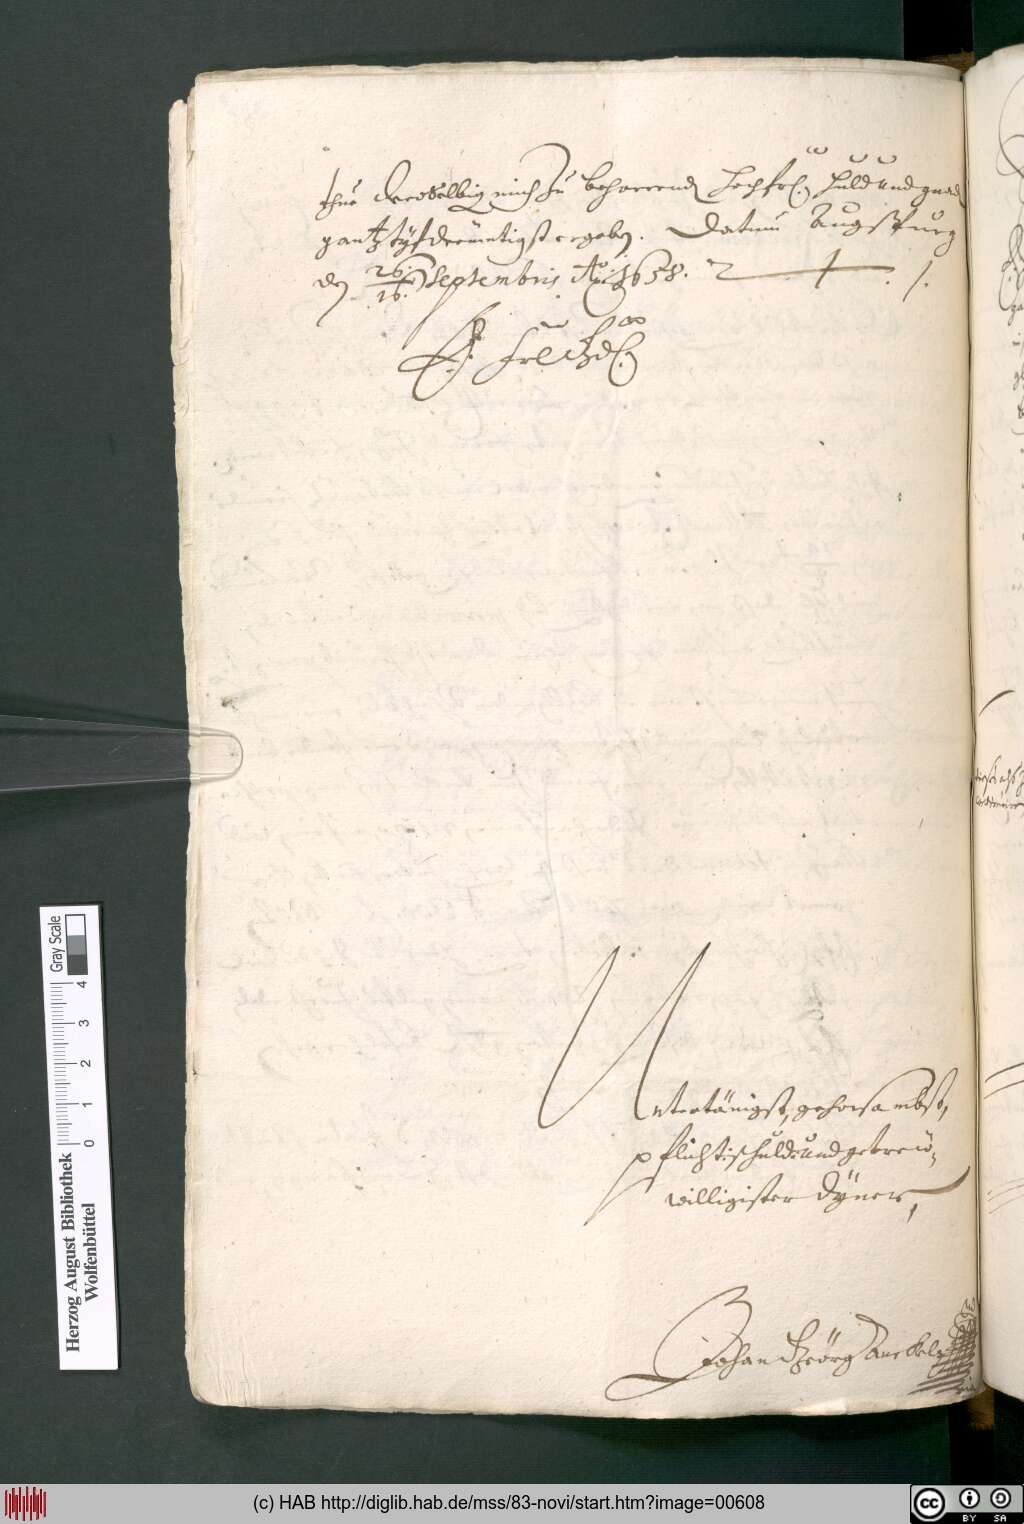 thue deroselbig mich zu beharrend hochfrl. huld und gnad
gantz tÿf demüetigst ergeben. Datum Augspurg
den 26./16. Septembris Ao. 1658.
E. Frl. Gd.
Untertänigst, gehorsambst,
pflichtschuld und getreü-
willigister dÿner,
Johan Geörg Anckel
Herzog August Bibliothek
Wolfenbüttel
0 1 2 3 4
Gray Scale
(c) HAB http://diglib.hab.de/mss/83-novi/start.htm?image=00608
CC BY SA